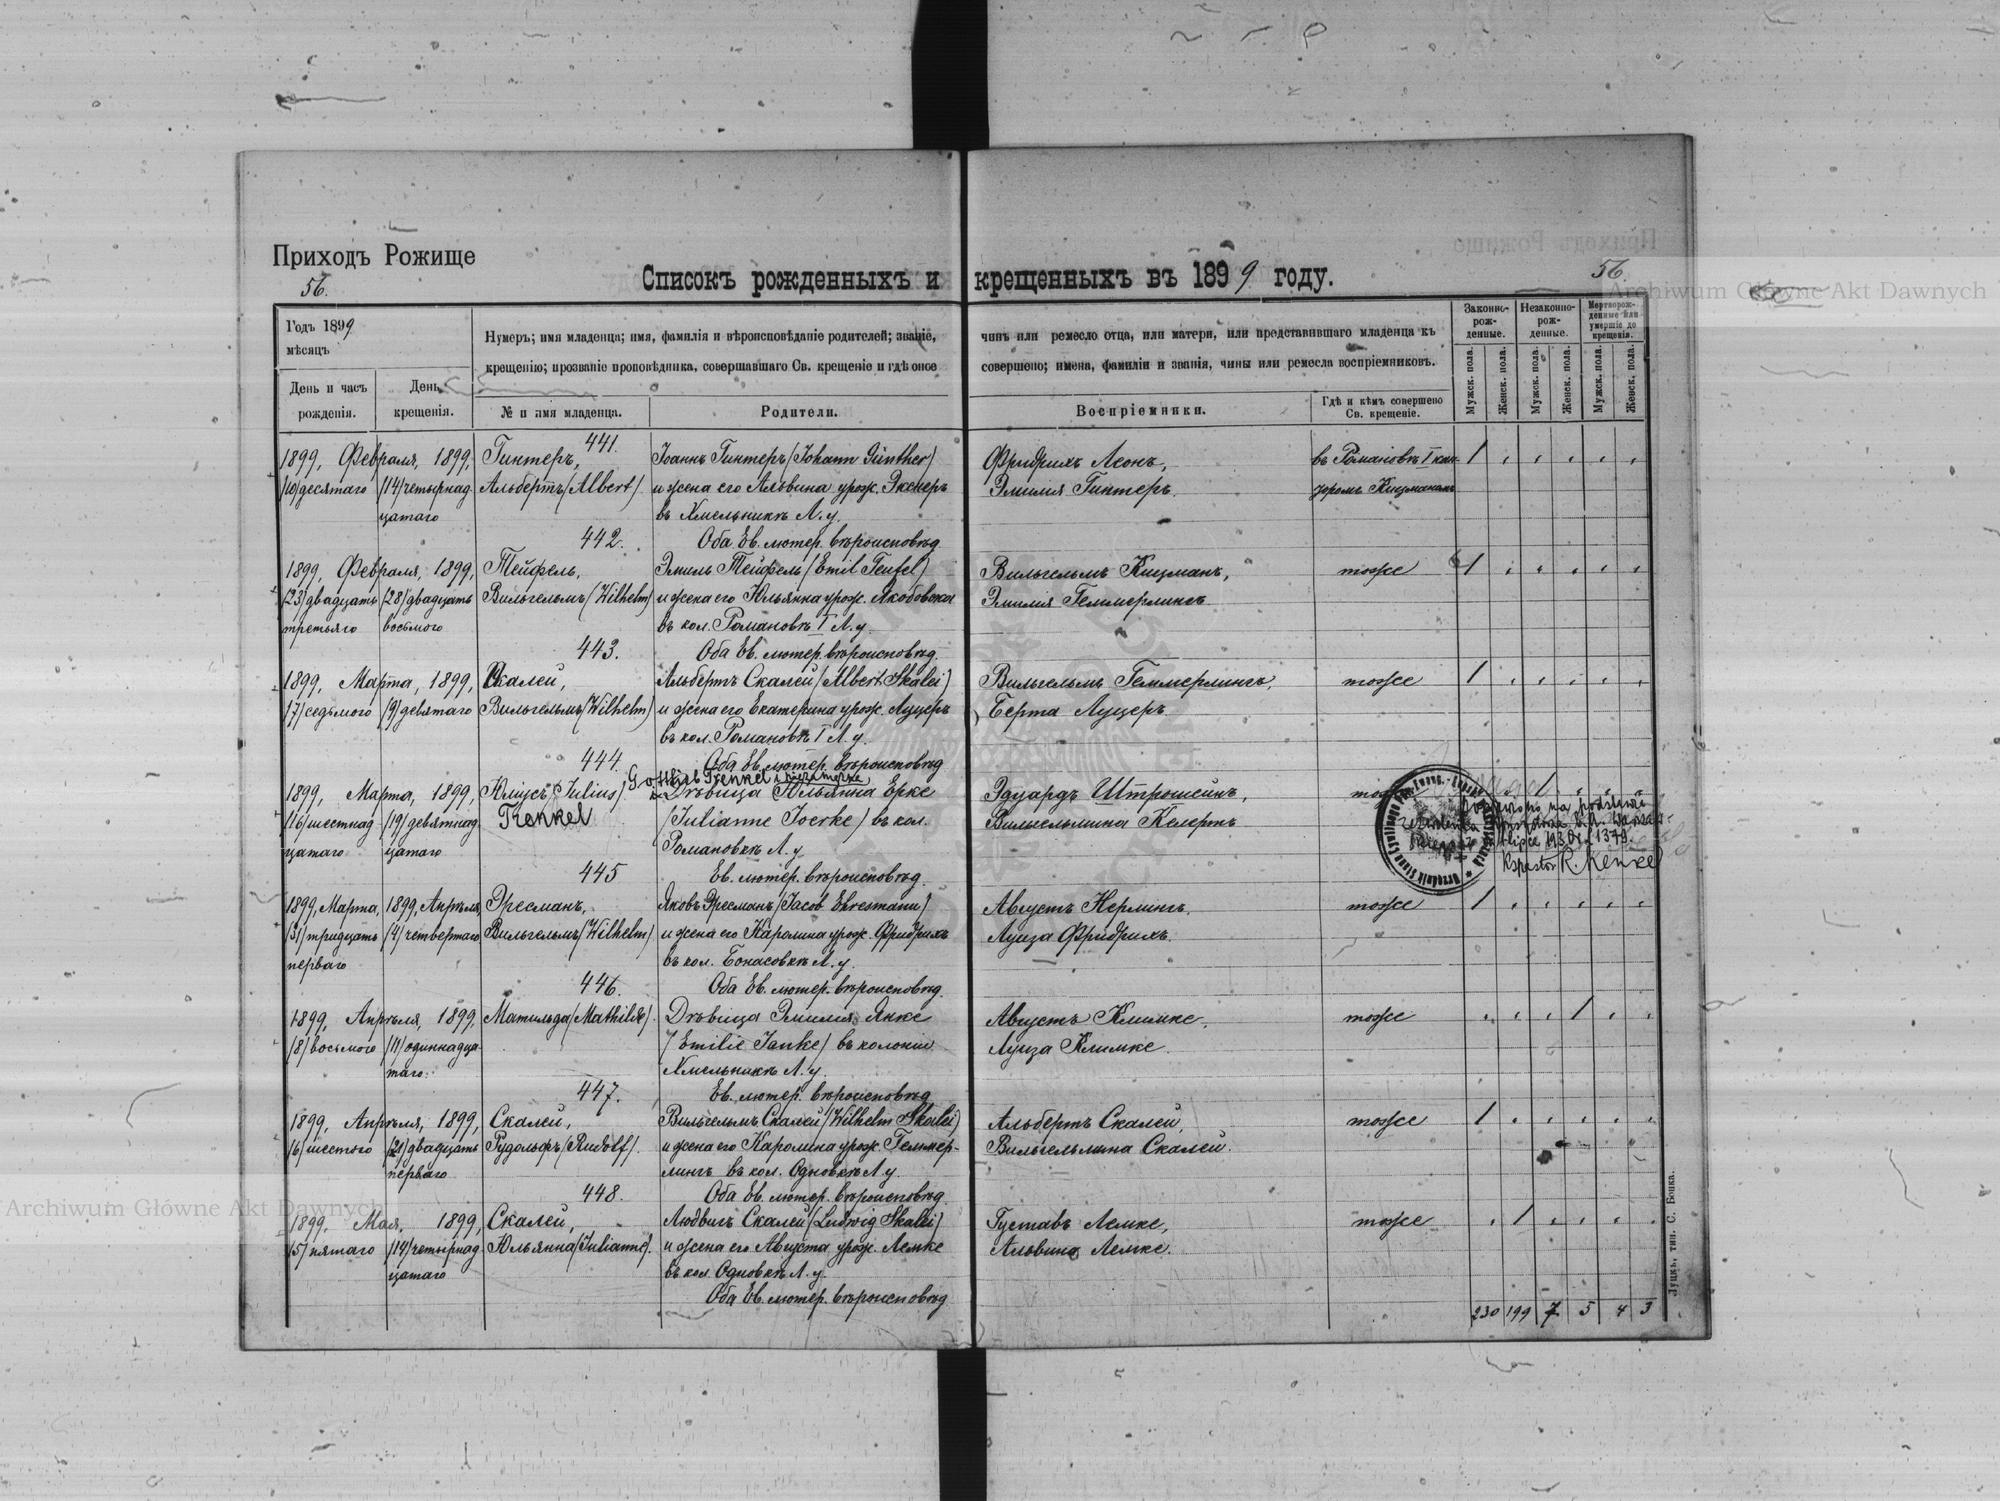 Приходъ Рожище
56.
56.
Списокъ рожденныхъ и крещенныхъ въ 1899 году.
Годъ 1899
мѣсяцъ
День и часъ рожденія.
День крещенія.
Нумеръ; имя младенца; имя, фамилія и вѣроисповѣданіе родителей; званіе, чинъ или ремесло отца, или матери, или представившаго младенца къ
крещенію; прозваніе проповѣдника, совершавшаго Св. крещеніе и гдѣ оное совершено; имена, фамиліи и званія, чины или ремесла воспріемниковъ.
№ и имя младенца.
Родители.
Воспріемники.
Гдѣ и кѣмъ совершено Св. крещеніе.
Законно-рож-денные.
Незаконно-рож-денные.
Мертворож-денные или умершіе до крещенія.
Мужск. пола.
Женск. пола.
Мужск. пола.
Женск. пола.
Мужск. пола.
Женск. пола.
441.
1899, Февраля, 1899, Гинтеръ, Іоаннъ Гинтеръ (Johann Günther) Фридрихъ Леонъ, въ Романовкѣ I кан- 1
(10) десятаго (14) четырнад- Альбертъ (Albert) и жена его Альвина урож. Экснеръ Эмилія Гинтеръ. торомъ Кицманомъ
цатаго въ Хмельникѣ Л. у.
442. Оба Ев. лютер. вѣроисповѣд.
1899, Февраля, 1899, Тейфель, Эмиль Тейфель (Emil Teufel) Вильгельмъ Кицманъ, тоже 1
(23) двадцать (28) двадцать Вильгельмъ (Wilhelm) и жена его Юльянна урож. Якобовская Эмилія Геммерлингъ
третьяго восьмого въ кол. Романовкѣ I Л. у.
443. Оба Ев. лютер. вѣроисповѣд.
1899, Марта, 1899, Скалей, Альбертъ Скалей (Albert Skalei) Вильгельмъ Геммерлингъ, тоже 1
(7) седьмого (9) девятаго Вильгельмъ (Wilhelm) и жена его Екатерина урож. Луцеръ Берта Луцеръ.
въ кол. Романовкѣ I Л. у.
444. Оба Ев. лютер. вѣроисповѣд.
Gottlieb Trenkel i niezamężna
1899, Марта, 1899, Юліусъ (Julius) Дѣвица Юльянна Ерке Эдуардъ Штрошейнъ, тоже 1
(16) шестнад- (19) девятнад- Trenkel (Julianne Joerke) въ кол. Вильгельмина Келертъ
цатаго цатаго Романовкѣ Л. у.
na podstawie
1930 r. 1379.
R. Kenzel
445 Ев. лютер. вѣроисповѣд.
1899, Марта, 1899, Апрѣля, Эресманъ, Яковъ Эресманъ (Jacob Ehresmann) Августъ Нерлингъ, тоже 1
(31) тридцать (4) четвертаго Вильгельмъ (Wilhelm) и жена его Каролина урож. Фридрихъ Луиза Фридрихъ.
перваго въ кол. Бонасовкѣ Л. у.
446. Оба Ев. лютер. вѣроисповѣд.
1899, Апрѣля, 1899, Матильда (Mathilde) Дѣвица Эмилія Янке Августъ Климке, тоже 1
(8) восьмого (11) одиннадца- (Emilie Janke) въ колоніи Луиза Климке.
таго. Хмельникѣ Л. у.
447. Ев. лютер. вѣроисповѣд.
1899, Апрѣля, 1899, Скалей, Вильгельмъ Скалей (Wilhelm Skalei) Альбертъ Скалей, тоже 1
(6) шестого (21) двадцать Рудольфъ (Rudolf) и жена его Каролина урож. Геммер- Вильгельмина Скалей.
перваго лингъ въ кол. Одновкѣ Л. у.
448. Оба Ев. лютер. вѣроисповѣд.
1899, Мая, 1899, Скалей, Людвигъ Скалей (Ludwig Skalei) Густавъ Лемке, тоже 1
(5) пятаго (14) четырнад- Юльянна (Julianne) и жена его Августа урож. Лемке Альвина Лемке.
цатаго въ кол. Одновкѣ Л. у.
Оба Ев. лютер. вѣроисповѣд.
230 199 7 5 4 3
Луцкъ, тип. С. Бонка.
Archiwum Główne Akt Dawnych
Archiwum Główne Akt Dawnych